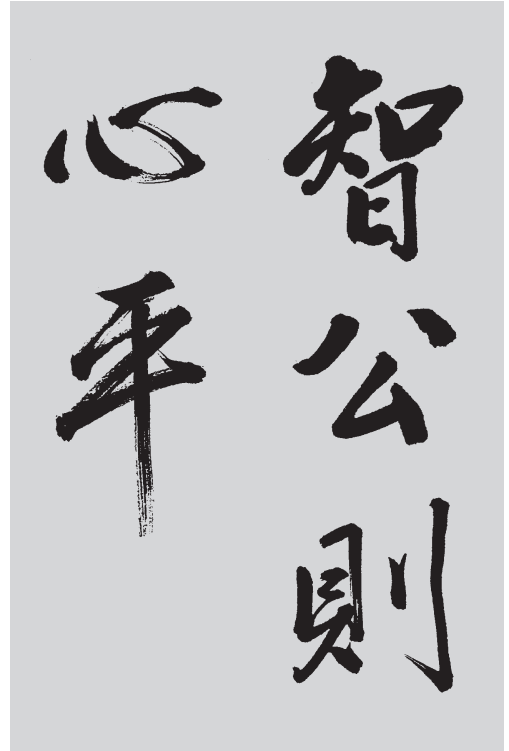 智公則
心平